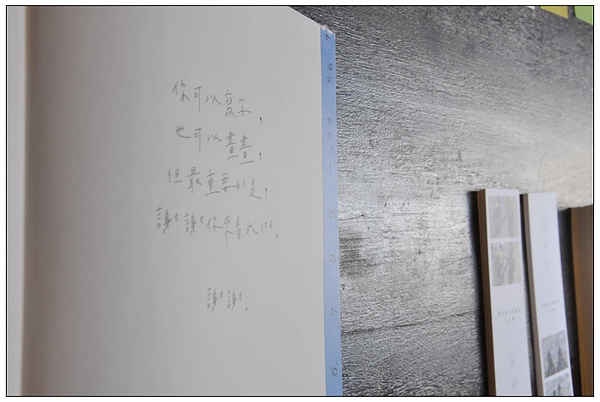 你可以寫字，
也可以畫畫，
但最重要的是，
謝謝你來看我們。
謝謝。